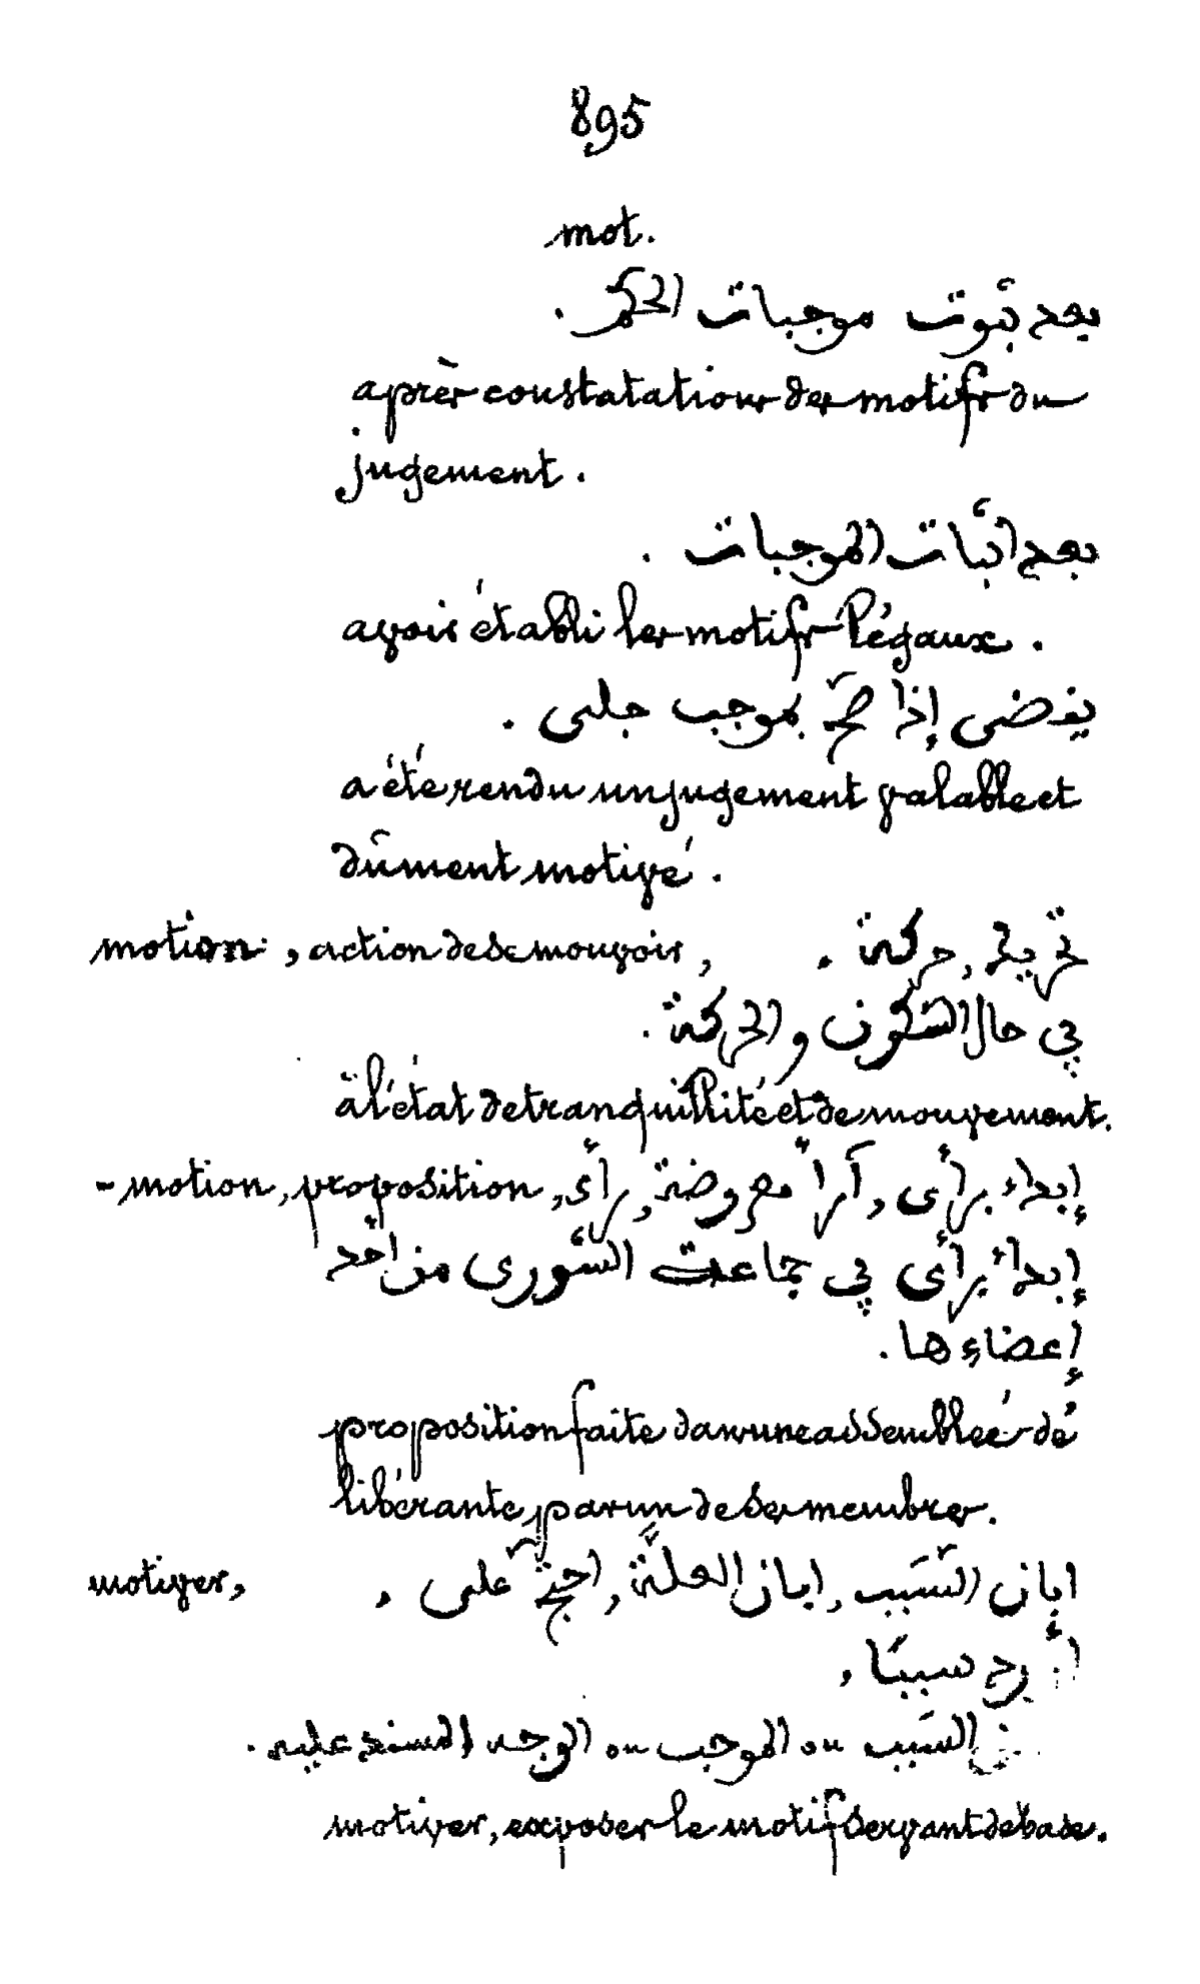 895
mot.
بعد ثبوت موجبات الحكم .
après constatation des motifs du
jugement.
بعد اثبات الموجبات .
avoir établi les motifs légaux.
بفرضى إذا صحّ بموجب جلى .
a été rendu un jugement valable et
dûment motivé.
motion, action de se mouvoir, تحريك, حركة .
في حال السّكون و الحركة .
à l'état de tranquillité et de mouvement.
- motion, proposition, إبداء برأى, آرا معروضة, رأى,
إبداء برأى في جماعة الشّورى من احد
إعضاءها.
proposition faite dans une assemblée dé
libérante, par un de ses membres.
motiver, ابان السّبب, ابان العلّة, احتجّ على ,
سببًا,
السّبب ou الموجب ou الوجه المستند عليه.
motiver, exposer le motif servant de base.